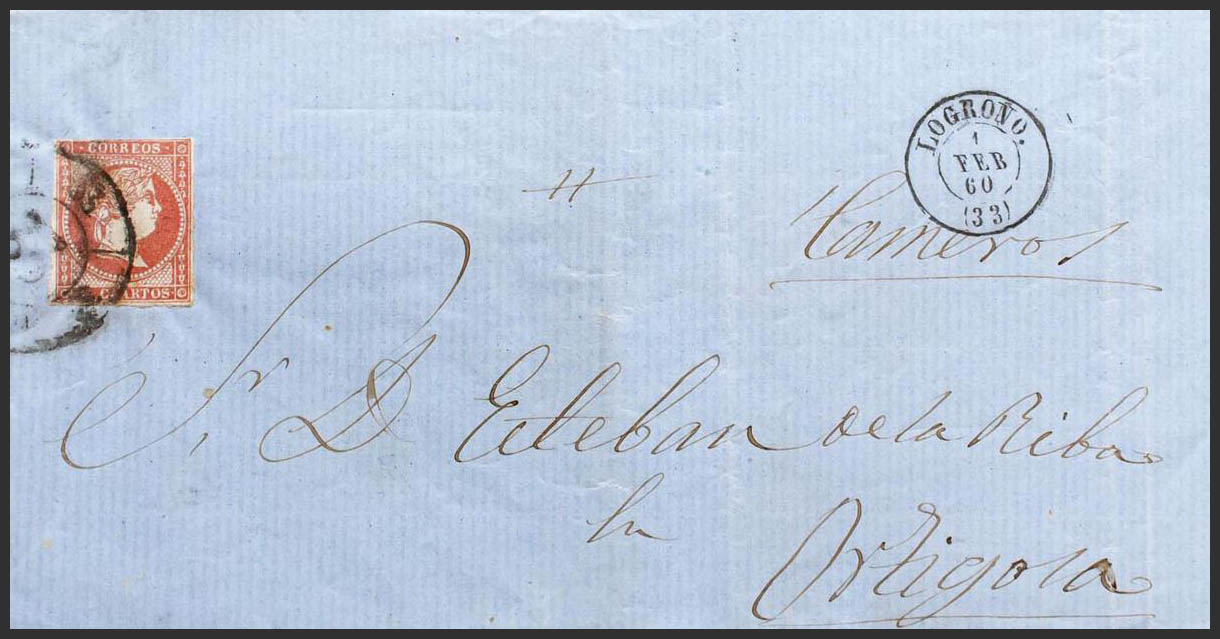 CORREOS
CUARTOS
LOGROÑO.
1
FEB
60
(33)
Cameros
Sr. D Esteban de la Riba
en
Ortigosa